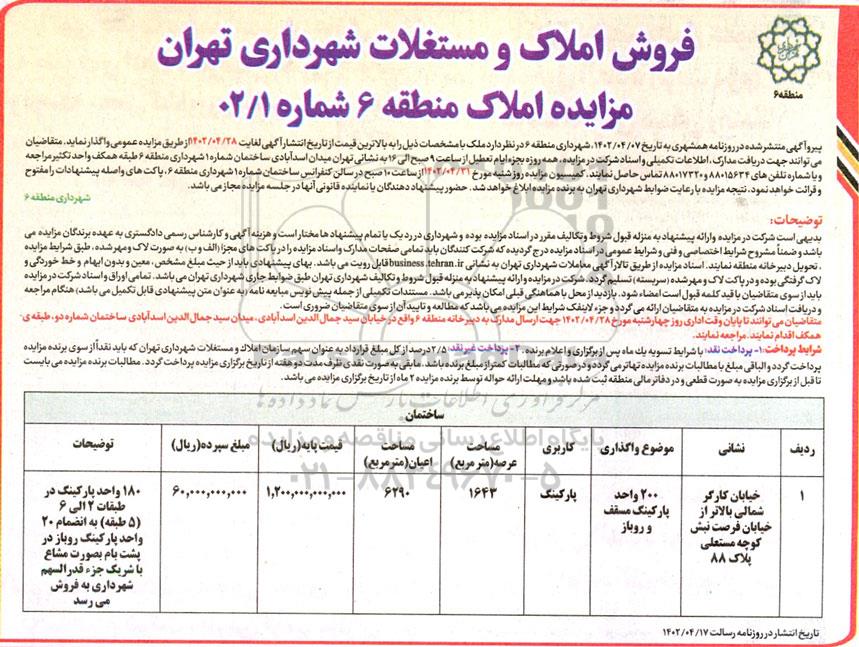 فروش املاک و مستغلات شهرداری تهران
مزایده املاک منطقه ۶ شماره ۰۲/۱
منطقه ۶
پیرو آگهی منتشر شده در روزنامه همشهری به تاریخ ۱۴۰۲/۰۴/۰۷، شهرداری منطقه ۶ در نظر دارد ملک با مشخصات ذیل را به بالاترین قیمت از تاریخ انتشار آگهی لغایت ۱۴۰۲/۰۴/۲۸ از طریق مزایده عمومی واگذار نماید. متقاضیان
می توانند جهت دریافت مدارک، اطلاعات تکمیلی و اسناد شرکت در مزایده، همه روزه بجزء ایام تعطیل از ساعت ۹ صبح الی ۱۶ به نشانی تهران میدان اسدآبادی ساختمان شماره ۱ شهرداری منطقه ۶ طبقه همکف واحد تکثیر مراجعه
و یا شماره تلفن های ۸۸۰۱۵۶۳۴ و ۸۸۰۱۷۳۲۰ تماس حاصل نمایند. کمیسیون مزایده روز شنبه مورخ ۱۴۰۲/۰۴/۳۱ از ساعت ۱۰ صبح در سالن کنفرانس ساختمان شماره ۱ شهرداری منطقه ۶، پاکت های واصله پیشنهادات را مفتوح
و قرائت خواهد نمود. نتیجه مزایده با رعایت ضوابط شهرداری تهران به برنده مزایده ابلاغ خواهد شد. حضور پیشنهاد دهندگان یا نماینده قانونی آنها در جلسه مزایده مجاز می باشد.
شهرداری منطقه ۶
توضیحات:
بدیهی است شرکت در مزایده و ارائه پیشنهاد به منزله قبول شروط و تکالیف مقرر در اسناد مزایده بوده و شهرداری در رد یک یا تمام پیشنهاد ها مختار است و هزینه آگهی و کارشناس رسمی دادگستری به عهده برندگان مزایده می
باشد و ضمناً مشروح شرایط اختصاصی و فنی و شرایط عمومی در اسناد مزایده درج گردیده که شرکت کنندگان باید تمامی صفحات مدارک و اسناد مزایده را در پاکت های مجزا (الف و ب) به صورت لاک و مهر شده، طبق شرایط مزایده
، تحویل دبیرخانه منطقه نمایند. اسناد مزایده از طریق تالار آگهی معاملات شهرداری تهران به نشانی business.tehran.ir قابل رویت می باشد. بهای پیشنهادی باید از حیث مبلغ مشخص، معین و بدون ابهام و خط خوردگی و
لاک گرفتگی بوده و در پاکت لاک و مهر شده (سربسته) تسلیم گردد. شرکت در مزایده و ارائه پیشنهاد به منزله قبول شروط و تکالیف شهرداری تهران طبق ضوابط جاری شهرداری تهران می باشد. تمامی اوراق و اسناد شرکت در مزایده
باید از سوی متقاضیان با قید کلمه قبول است امضاء شود. بازدید از محل با هماهنگی قبلی امکان پذیر می باشد. مستندات تکمیلی از جمله پیش نویس مبایعه نامه (به عنوان متن پیشنهادی قابل تکمیل می باشد) هنگام مراجعه
و دریافت اسناد شرکت در مزایده به متقاضیان ارائه می گردد و جزء لاینفک شرایط این مزایده می باشد که مطالعه و تایید آن از سوی متقاضیان ضروری است.
متقاضیان می توانند تا پایان وقت اداری روز چهارشنبه مورخ ۱۴۰۲/۰۴/۲۸ جهت ارسال مدارک به دبیرخانه منطقه ۶ واقع در خیابان سید جمال الدین اسدآبادی، میدان سید جمال الدین اسدآبادی ساختمان شماره دو، طبقه ی
همکف اقدام نمایند. مراجعه نمایند.
شرایط پرداخت: ۱- پرداخت نقد: با شرایط تسویه یک ماه پس از برگزاری و اعلام برنده. ۲- پرداخت غیر نقد: ۲/۵ درصد از کل مبلغ قرارداد به عنوان سهم سازمان املاک و مستغلات شهرداری تهران که باید نقداً از سوی برنده مزایده
پرداخت گردد و الباقی مبلغ با مطالبات برنده مزایده تهاتر می گردد و در صورتی که مطالبات کمتر از مبلغ برنده باشد. مابقی به صورت نقدی ظرف مدت دو هفته از تاریخ برگزاری مزایده پرداخت گردد. مطالبات برنده مزایده می بایست
تا قبل از برگزاری مزایده به صورت قطعی و در دفاتر مالی منطقه ثبت شده باشد و مهلت ارائه حواله توسط برنده مزایده ۲ ماه از تاریخ برگزاری مزایده می باشد.
مرکز فرآوری اطلاعات پارس نماد داده ها
پایگاه اطلاع رسانی مناقصه و مزایده
۰۲۱-۸۸۳۴۹۶۷۰-۵
ساختمان
ردیف نشانی موضوع واگذاری کاربری مساحت عرصه(متر مربع) مساحت اعیان(مترمربع) قیمت پایه(ریال) مبلغ سپرده(ریال) توضیحات
۱ خیابان کارگر شمالی بالاتر از خیابان فرصت نبش کوچه مستعلی پلاک ۸۸ ۲۰۰ واحد پارکینگ مسقف و روباز پارکینگ ۱۶۴۳ ۶۲۹۰ ۱,۲۰۰,۰۰۰,۰۰۰,۰۰۰ ۶۰,۰۰۰,۰۰۰,۰۰۰ ۱۸۰ واحد پارکینگ در طبقات ۲ الی ۶ (۵ طبقه) به انضمام ۲۰ واحد پارکینگ روباز در پشت بام بصورت مشاع با شریک جزء قدرالسهم شهرداری به فروش می رسد
تاریخ انتشار در روزنامه رسالت ۱۴۰۲/۰۴/۱۷